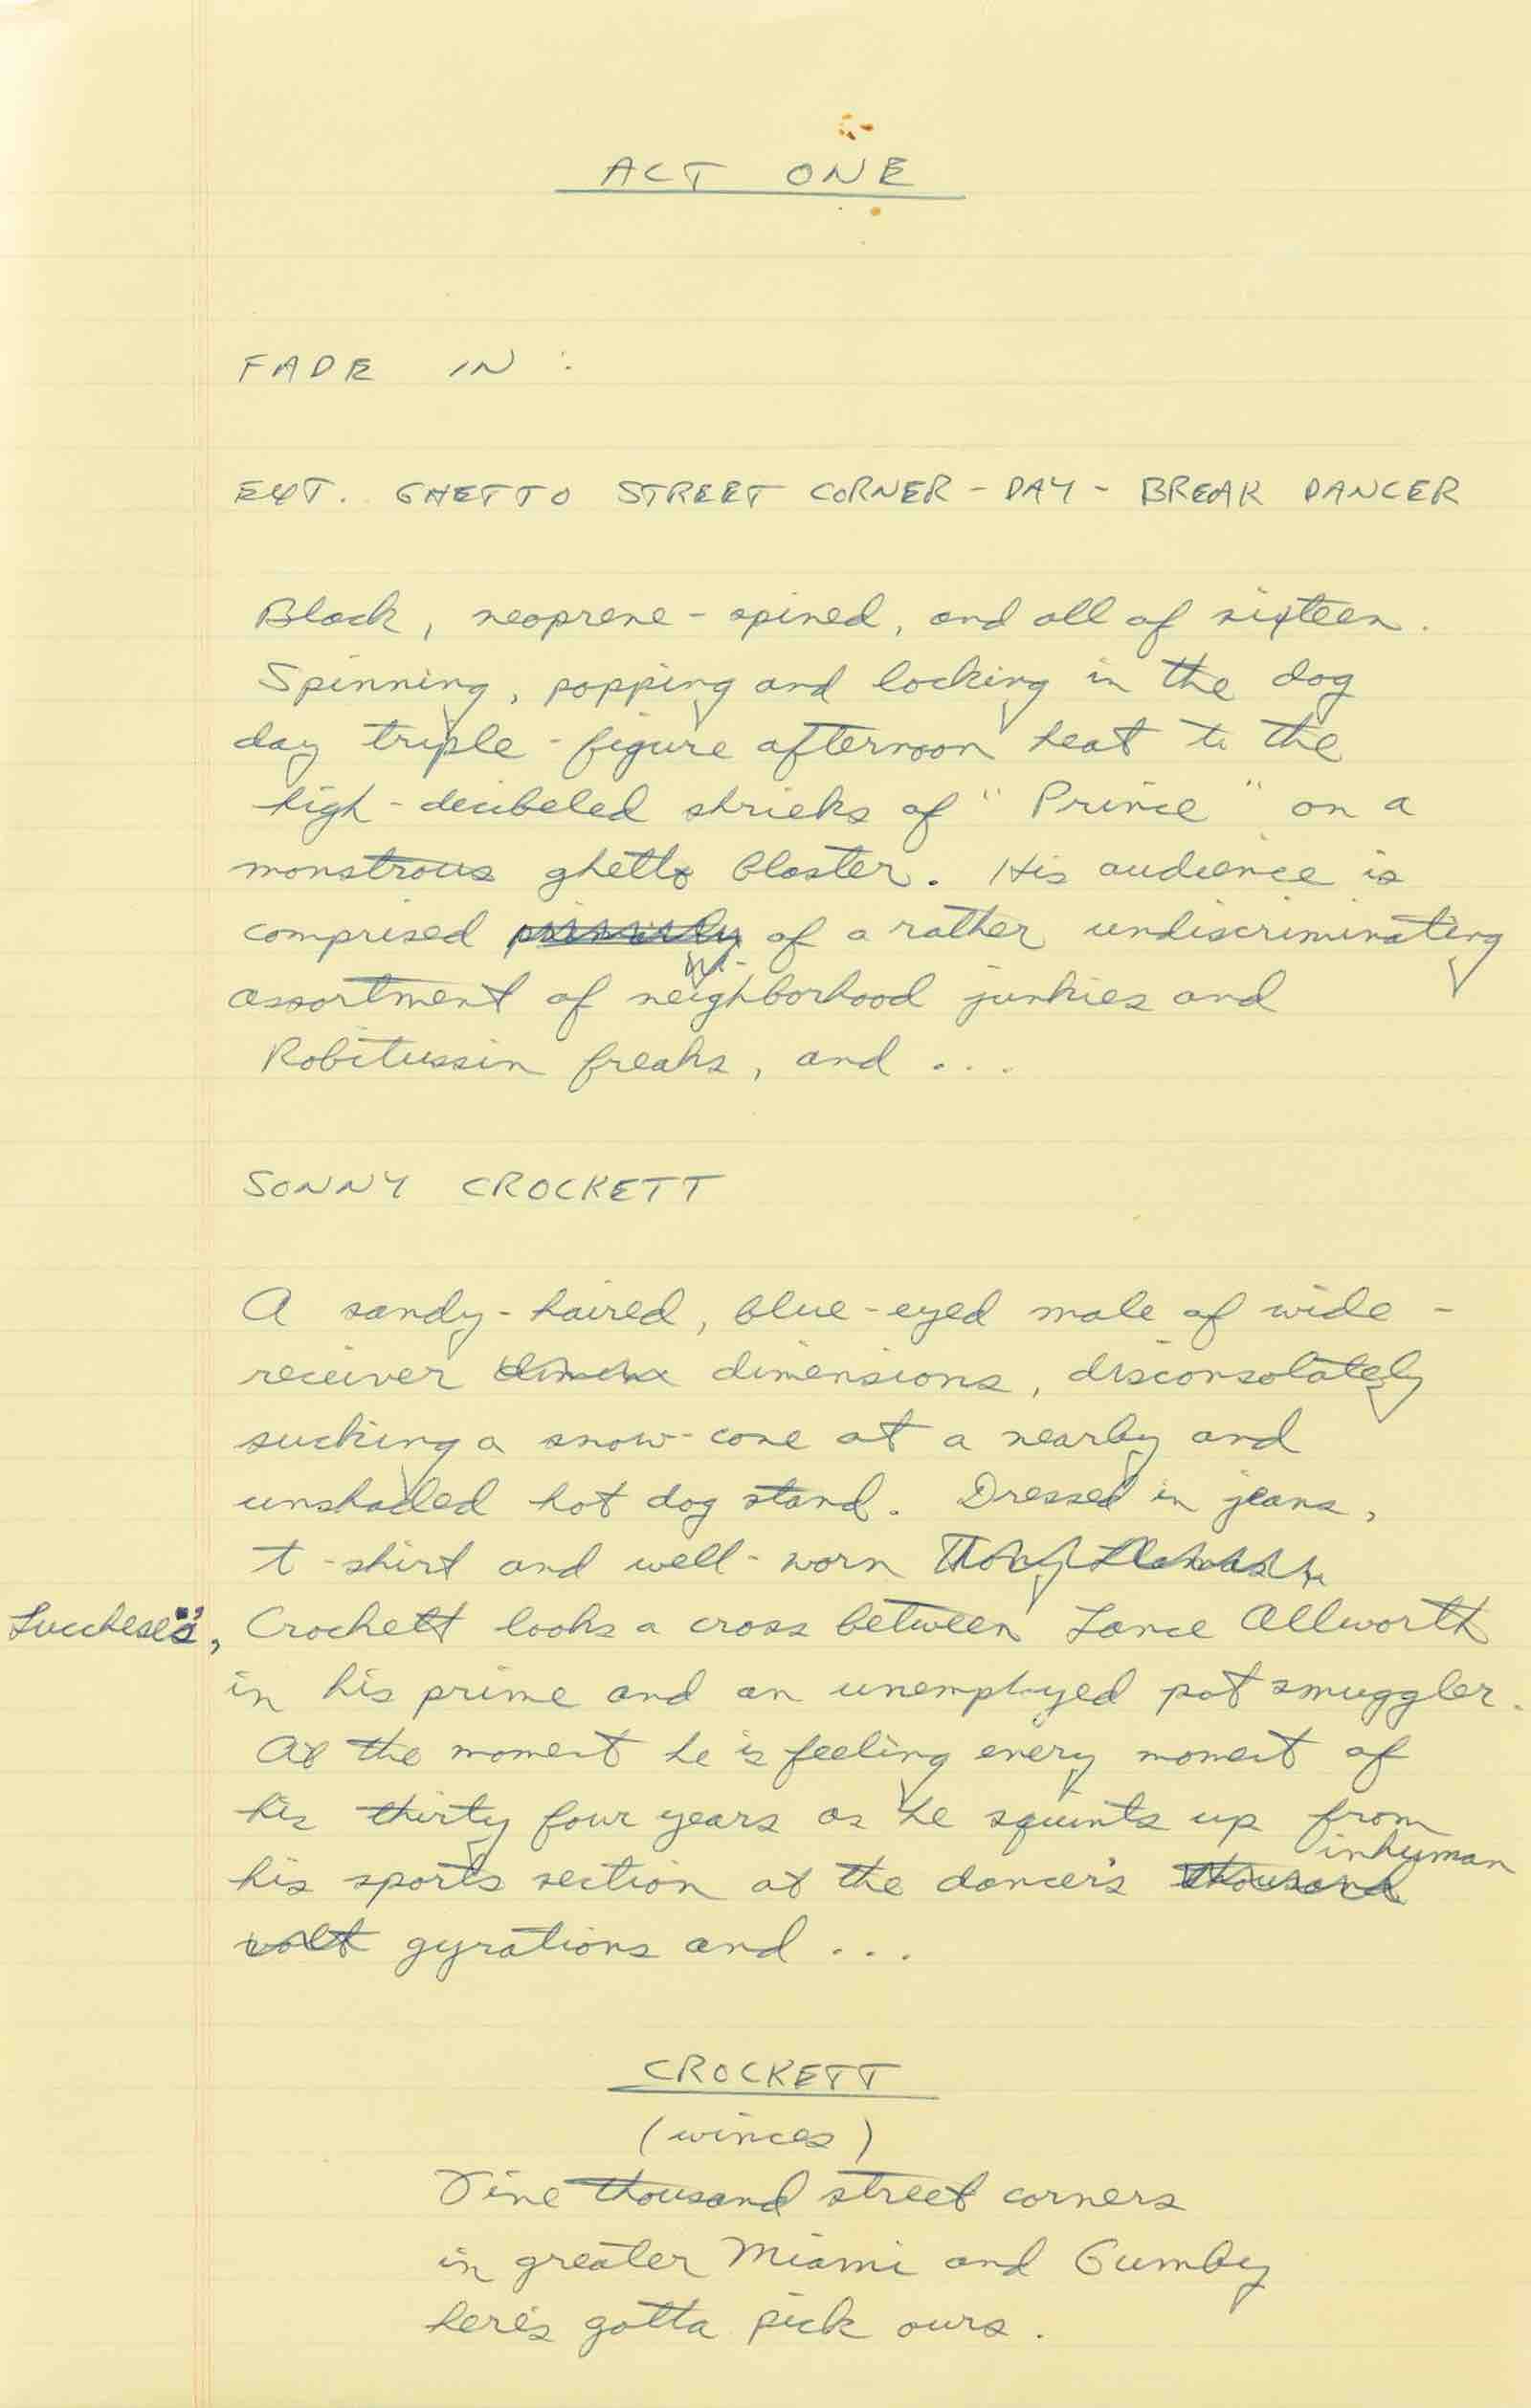 ACT ONE
FADE IN :
EXT. GHETTO STREET CORNER - DAY - BREAK DANCER
Black, neoprene-spined, and all of sixteen.
Spinning, popping and locking in the dog
day triple-figure afternoon heat to the
high-decibeled shrieks of "Prince" on a
monstrous ghetto blaster. His audience is
comprised primarily of a rather undiscriminating
assortment of neighborhood junkies and
Robitussin freaks, and ...
SONNY CROCKETT
A sandy-haired, blue-eyed male of wide-
receiver dimensions, disconsolately
sucking a snow-cone at a nearby and
unshaded hot dog stand. Dressed in jeans,
t-shirt and well-worn
Luccheses, Crockett looks a cross between Lance Allworth
in his prime and an unemployed pot smuggler.
At the moment he is feeling every moment of
his thirty four years as he squints up from
inhuman
his sports section at the dancer's thousand
volt gyrations and ...
CROCKETT
(winces)
Five thousand street corners
in greater Miami and Gumby
here's gotta pick ours.